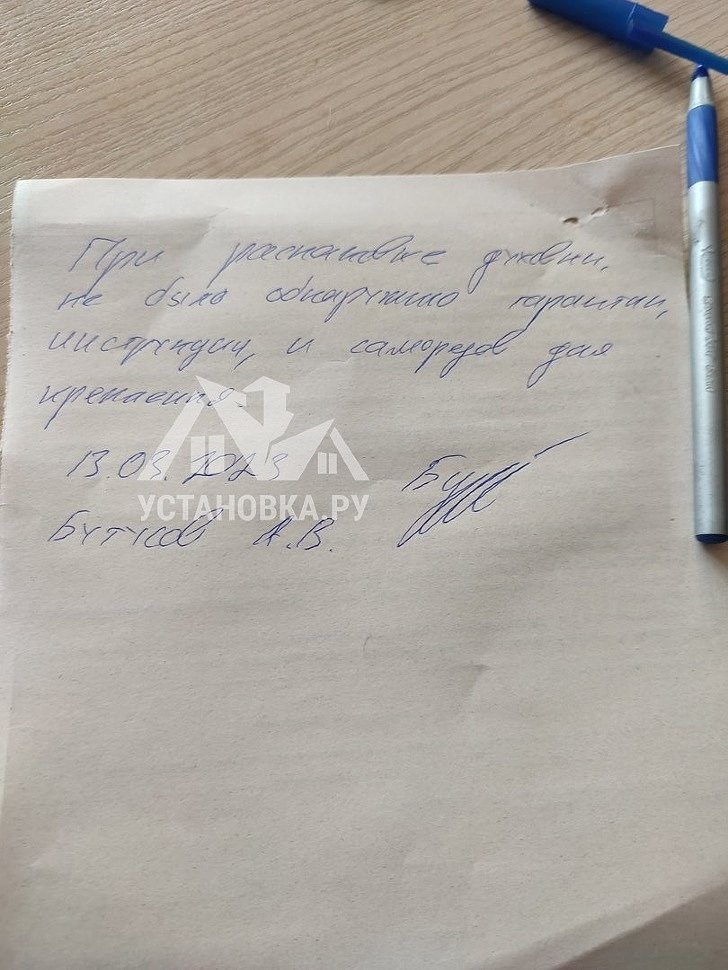 При распаковке духовки,
не было обнаружено гарантии,
инструкции, и саморезов для
крепления.
13.03.2023
УСТАНОВКА.РУ
Бутусов А.В.